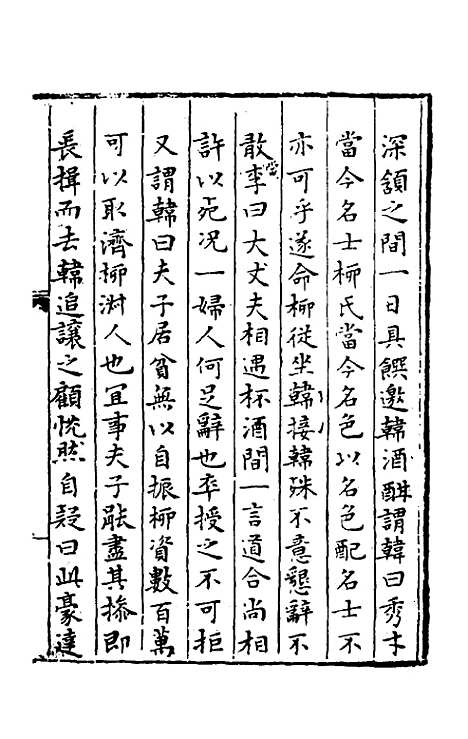 深頟之間一日具饌邀韓酒酣謂韓曰秀才
當今名士柳氏當今名色以名色配名士不
亦可乎遂命柳從坐韓接韓殊不意懇辭不
敢李曰大丈夫相遇杯酒間一言道合尚相
許以死况一婦人何足辭也卒授之不可拒
又謂韓曰夫子居貧無以自振柳資數百萬
可以取濟柳淑人也宜事夫子能盡其操即
長揖而去韓追讓之顧恍然自疑曰此豪達